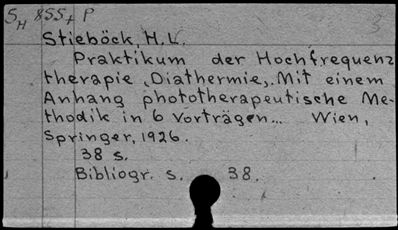 SH 855+ P
Stieböck, H.L.
Praktikum der Hochfrequenz
therapie (Diathermie). Mit einem
Anhang phototherapeutische Me-
thodik in 6 Vorträgen... Wien,
Springer, 1926.
38 s.
Bibliogr. s. 38.